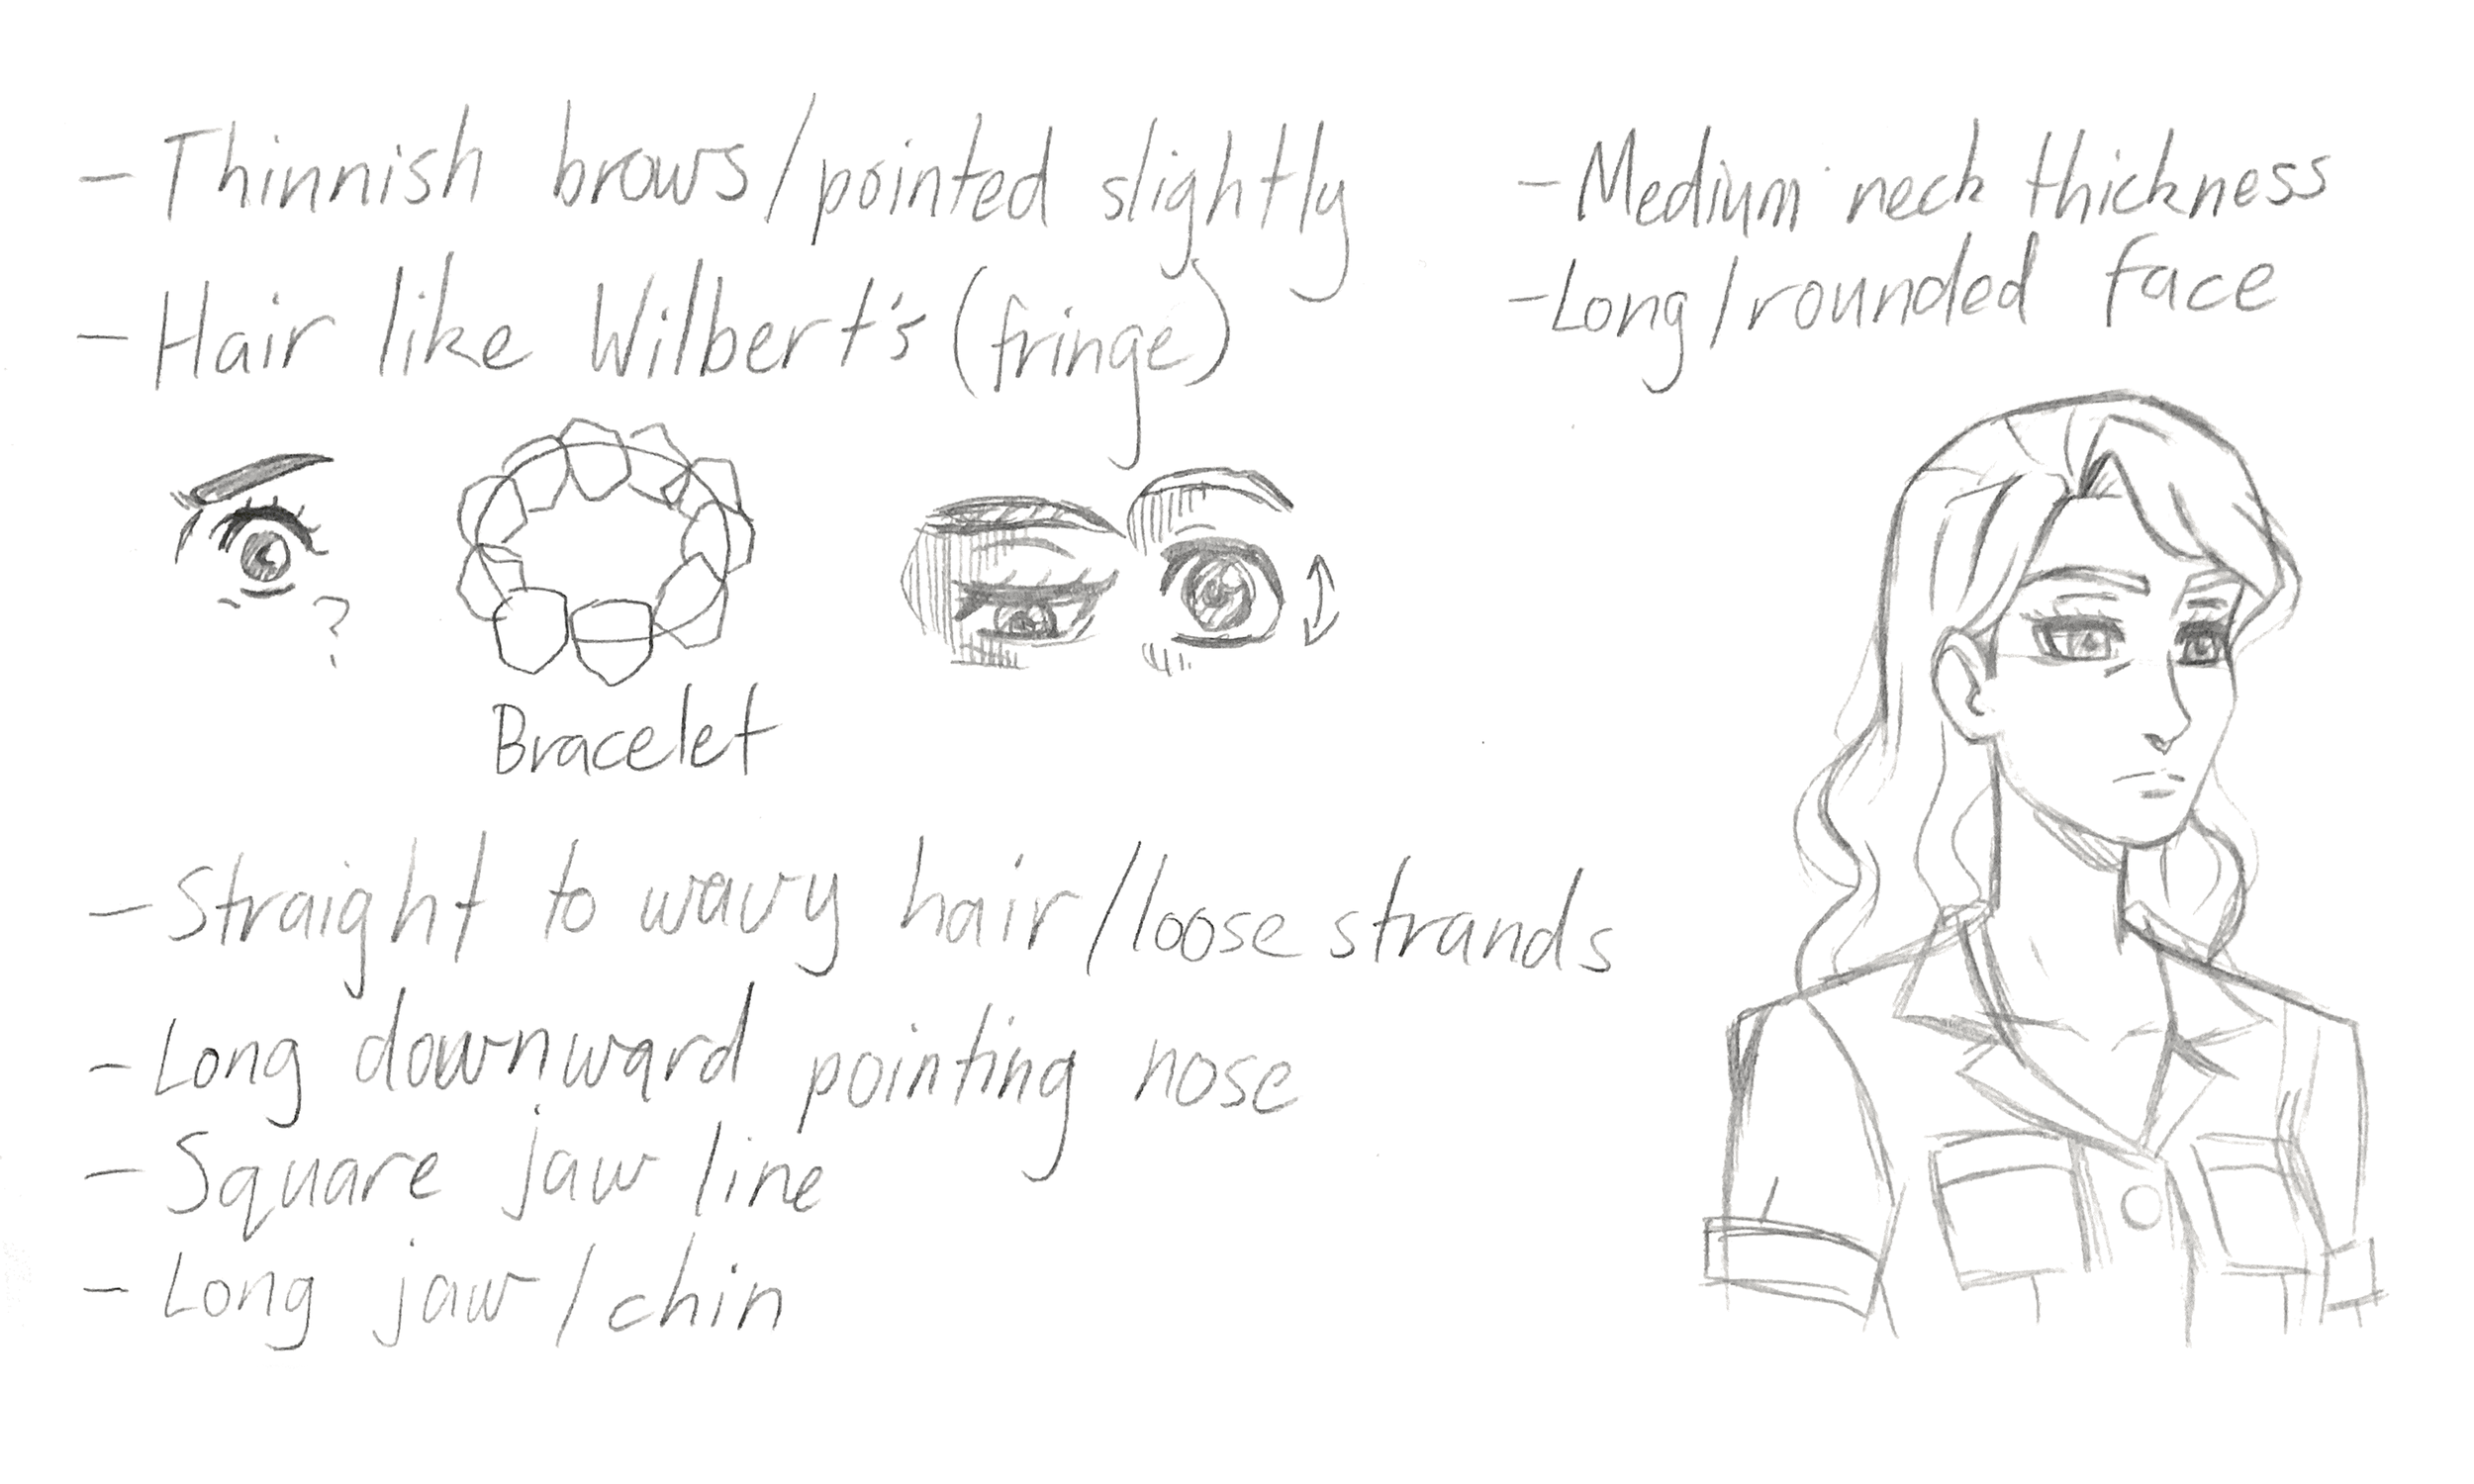 - Thinnish brows/pointed slightly
- Hair like Wilbert's (fringe)
- Medium neck thickness
- Long/rounded face
?
Bracelet
- Straight to wavy hair/loose strands
- Long downward pointing nose
- Square jaw line
- Long jaw/chin